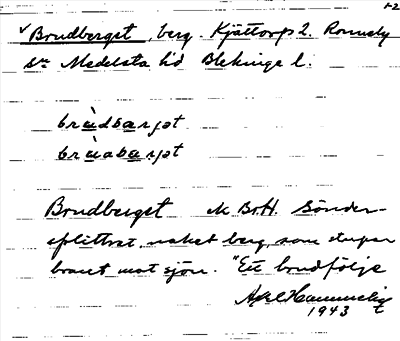 1-2
√ Brudberget, berg. Kjättorp 2. Ronneby
sn Medelsta hd Blekinge l.
brùdbarjət
brùabarjət
Brudberget M Br.H. Sönder-
splittrat, naket berg, som stupar
brant mot sjön. "Ett brudfölje
Axel
1943